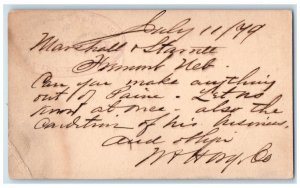 July 11/79
Marshall & Starrett
Fremont Neb.
Can you make anything
out of Paine - Let us
know at once - also the
condition of his business,
and oblige
Co